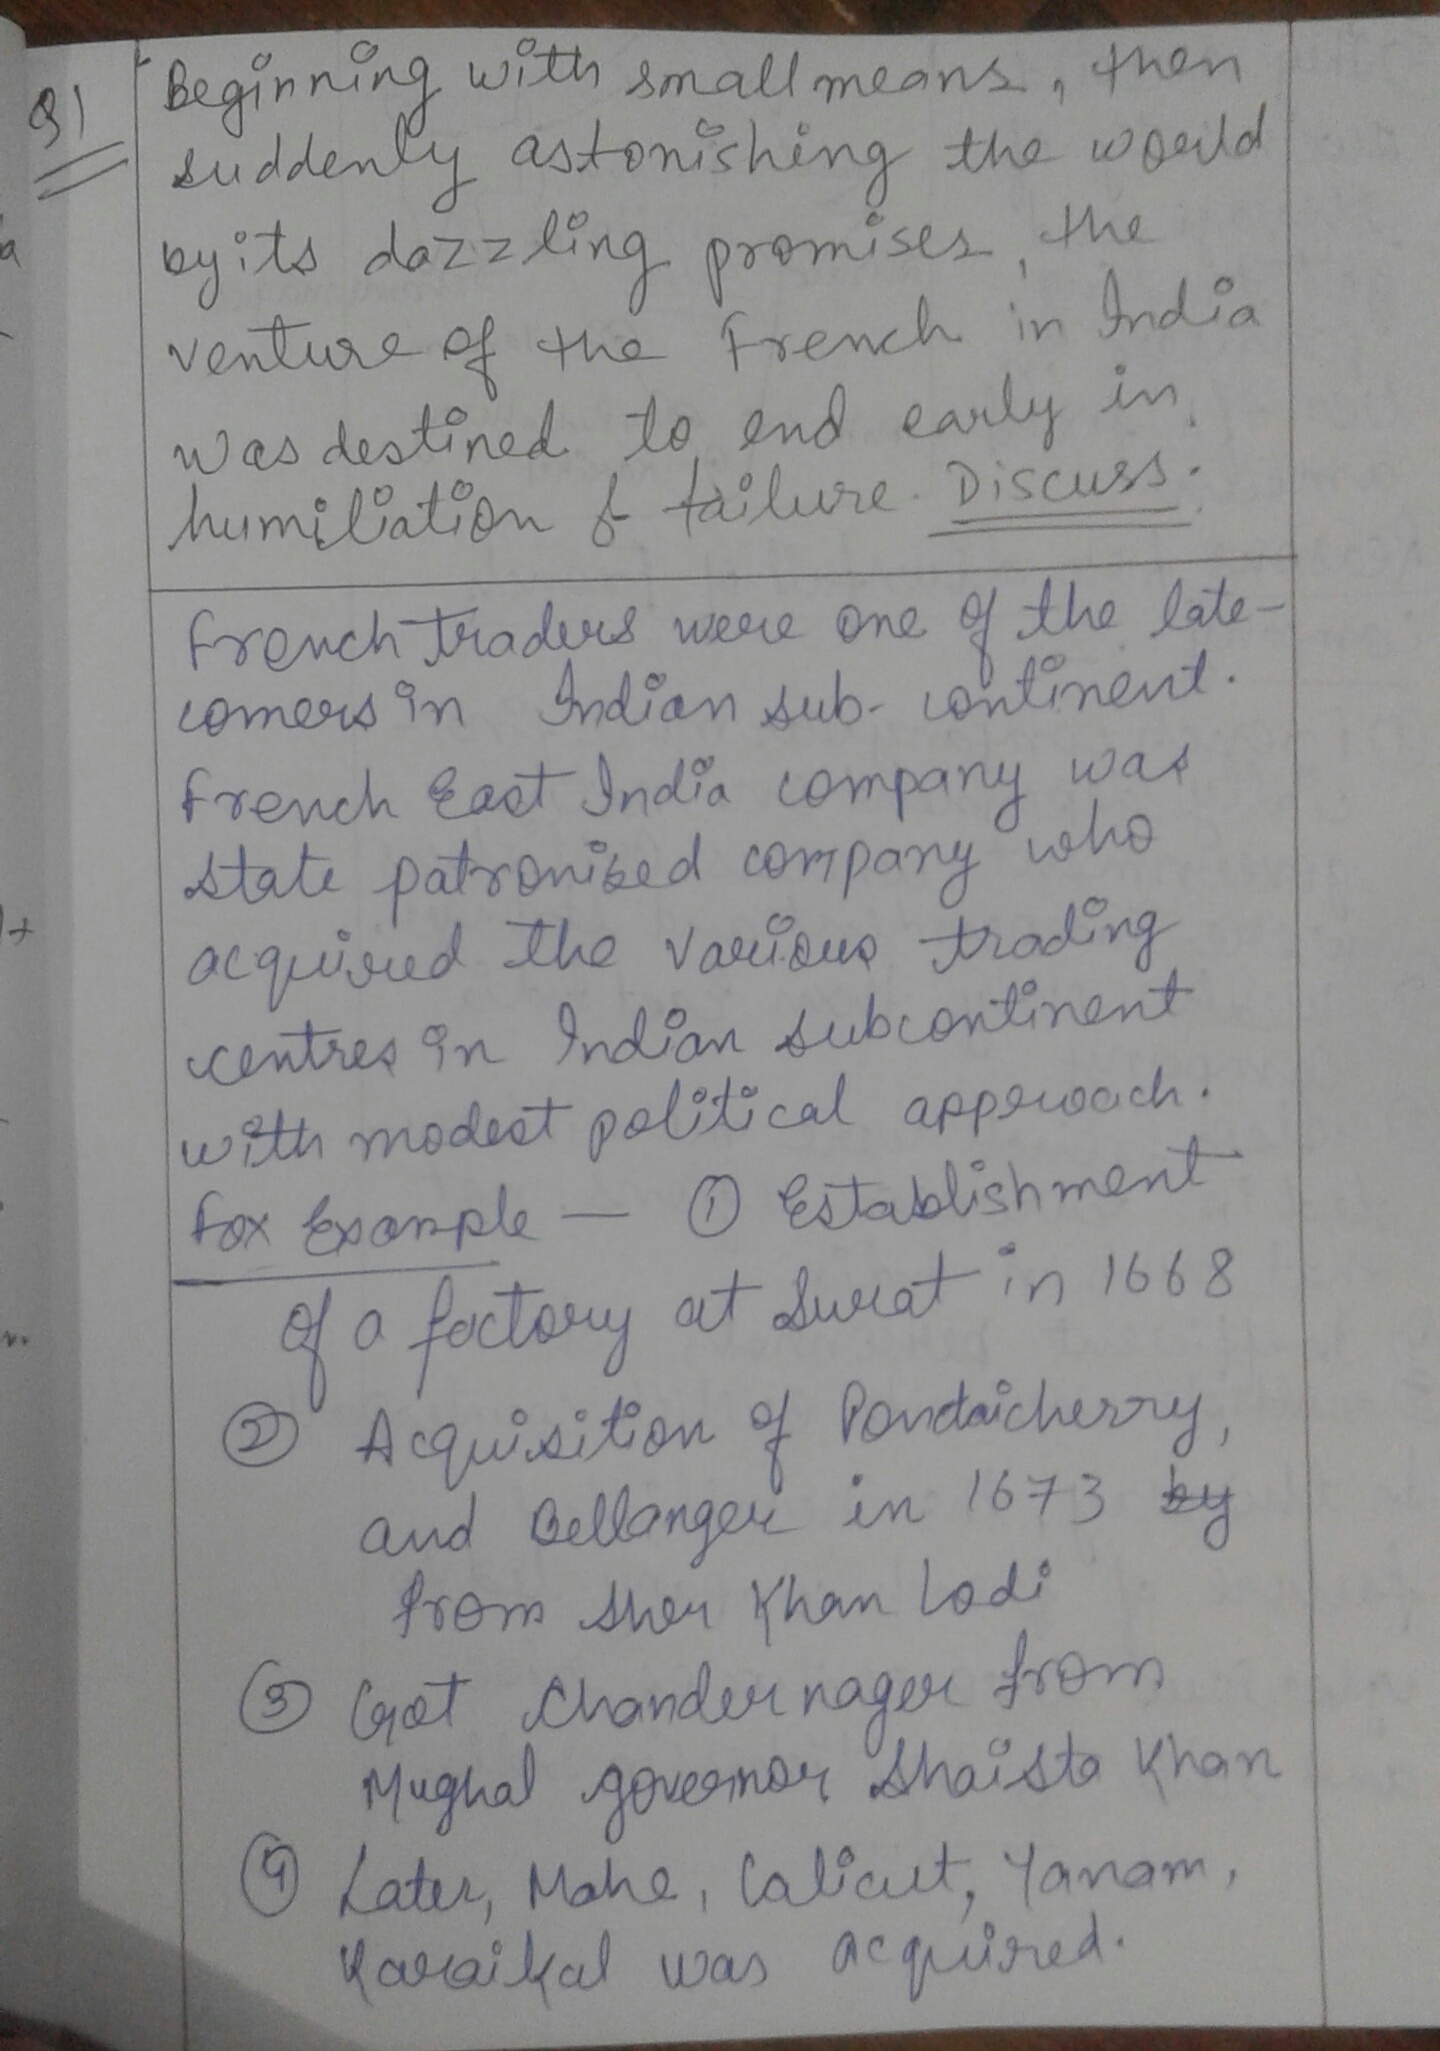 Q1 Beginning with small means, then
suddenly astonishing the world
by its dazzling promises, the
venture of the French in India
was destined to end early in
humiliation & failure. Discuss.
French traders were one of the late-
comers in Indian sub-continent.
French East India company was
state patronised company who
acquired the various trading
centres in Indian subcontinent
with modest political approach.
For Example — ① Establishment
of a factory at Surat in 1668
② Acquisition of Pondaicherry,
and Bellanger in 1673 by
from Sher Khan Lodi
③ Got Chandernager from
Mughal governor Shaista Khan
④ Later, Mahe, Calicut, Yanam,
Karaikal was acquired.